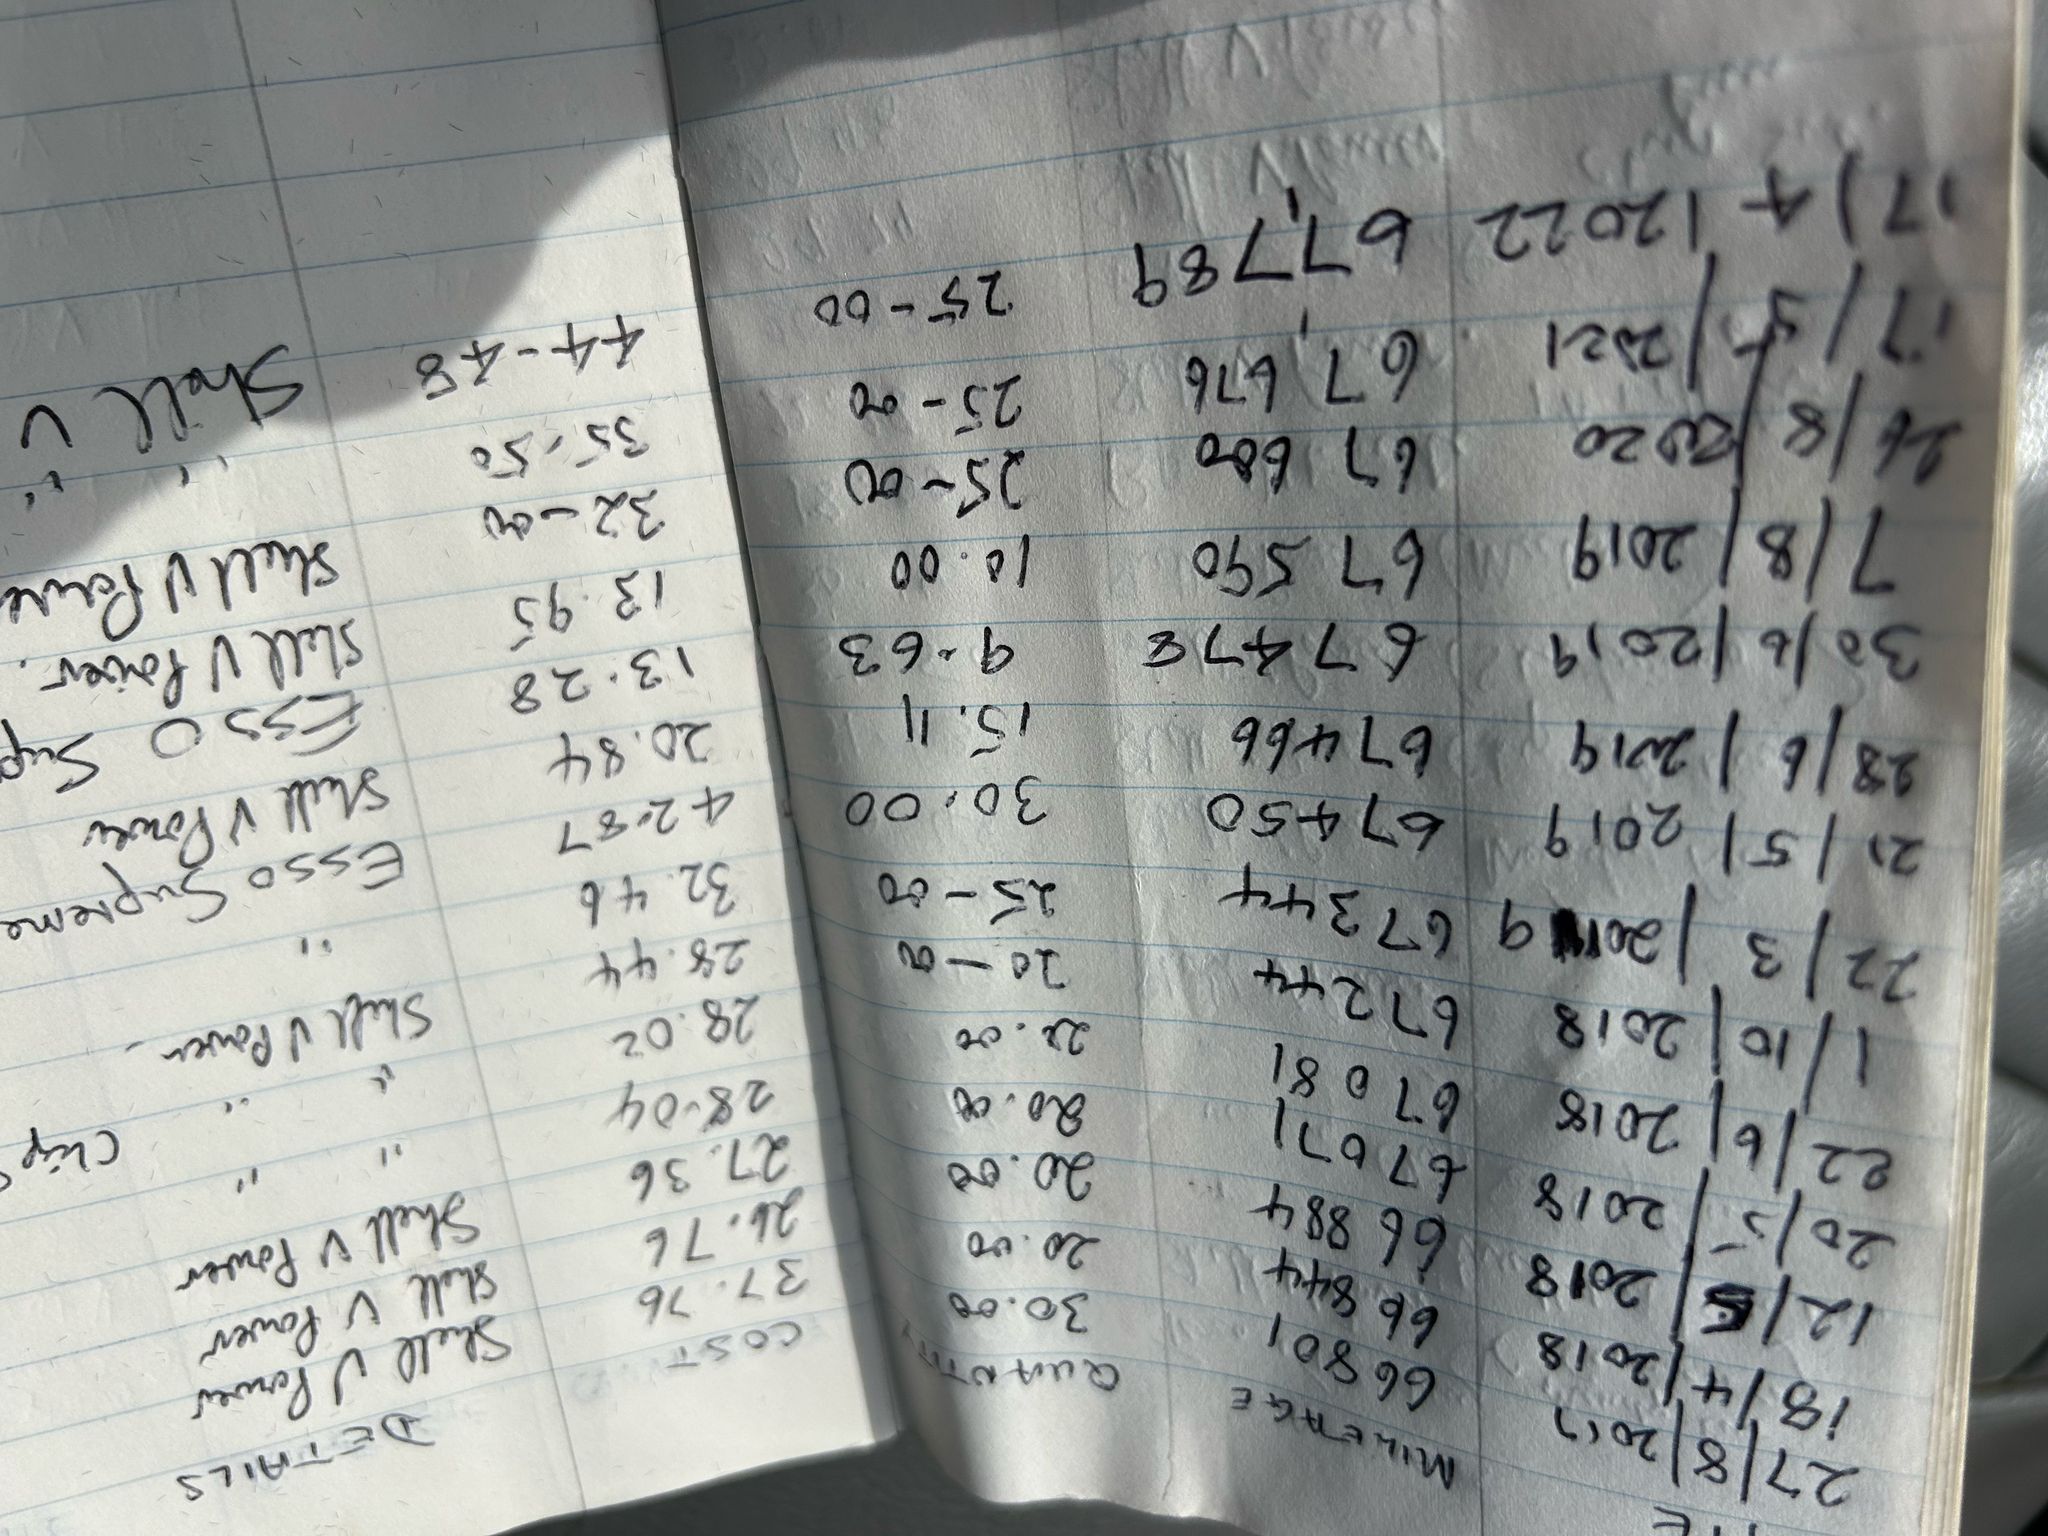 TE MILEAGE QUANTITY COST DETAILS
27/8/2017 66801 30.00 37.76 Shell V Power
18/4/2018 66844 20.00 26.76 Shell V Power
12/5/2018 66884 20.00 27.36 Shell V Power
20/5/2018 67071 20.00 28.04 " "
22/6/2018 67081 20.00 28.02 " " Chip
1/10/2018 67244 20-00 28.44 Shell V Power
22/3/2019 67344 25-00 32.46 "
21/5/2019 67450 30.00 42.87 Esso Supreme
28/6/2019 67466 15.11 20.84 Shell V Power
30/6/2019 6747 9.63 13.28 ESSO Sup
7/8/2019 67590 10.00 13.95 Shell V Power.
26/8/2020 67600 25-00 32-00 Shell V Powe
17/5/2021 67,676 25-00 35.50 " "
17/4/2022 67,789 25-00 44-48 Shell V